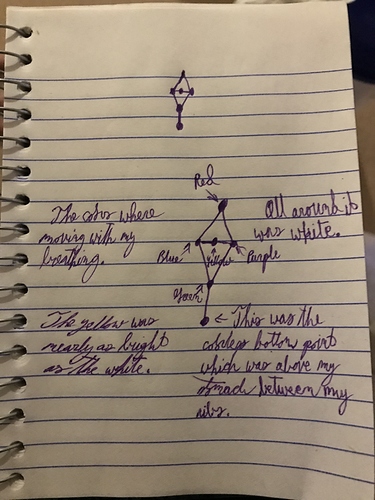 Red
The colors where
moving with my
breathing.
All around it
was white.
Blue
Yellow
Purple
Green
The yellow was
nearly as bright
as the white.
This was the
colorless bottom point
which was above my
between my
ribs.